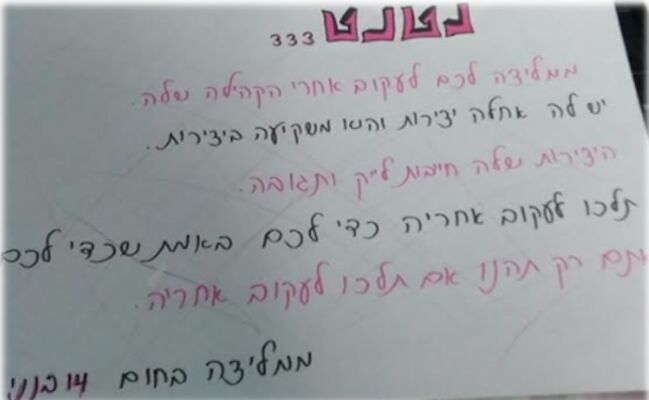 נטנט 333
ממליצה לכם לעקוב אחרי הקהילה שלה.
יש לה אחלה יצירות והיא משקיעה ביצירות.
היצירות שלה חיבות לייק ותגובה.
תלכו לעקוב אחריה כדי לכם באמת שכדי לכם
אתם רק תהנו אם תלכו לעקוב אחריה.
ממליצה בחום